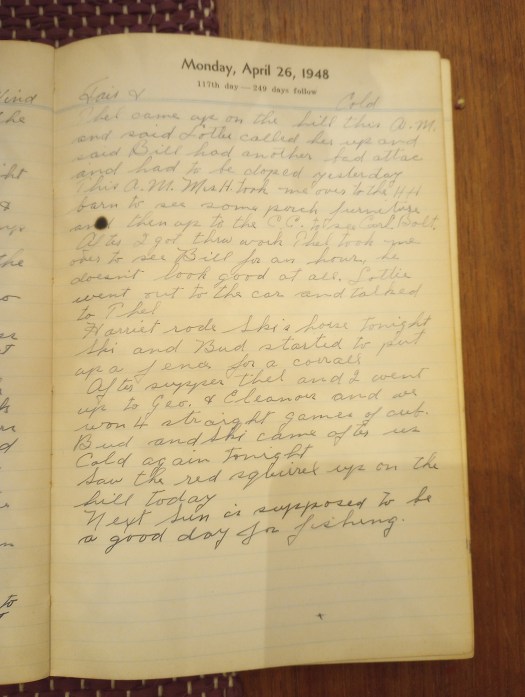 Monday, April 26, 1948
117th day — 249 days follow
Fair & Cold
Thel came up on the hill this A.M.
and said Lottie called her up and
said Bill had another bad attac
and had to be doped yesterday
This A.M. Mrs H. took me over to the
barn to see some porch furniture
and then up to the C.C. to see Carl
After I got thru work Thel took me
over to see Bill for an hour, he
doesn't look good at all. Lottie
went out to the car and talked
to Thel
Harriet rode Ski's horse tonight
Ski and Bud started to put
up a fence for a corral
After supper Thel and I went
up to Geo. & Eleanors and we
won 4 straight games of
Bud and Ski came after us
Cold again tonight
Saw the red squirrel up on the
hill today
Next Sun is supposed to be
a good day for fishing.
the
ght
&
the
to